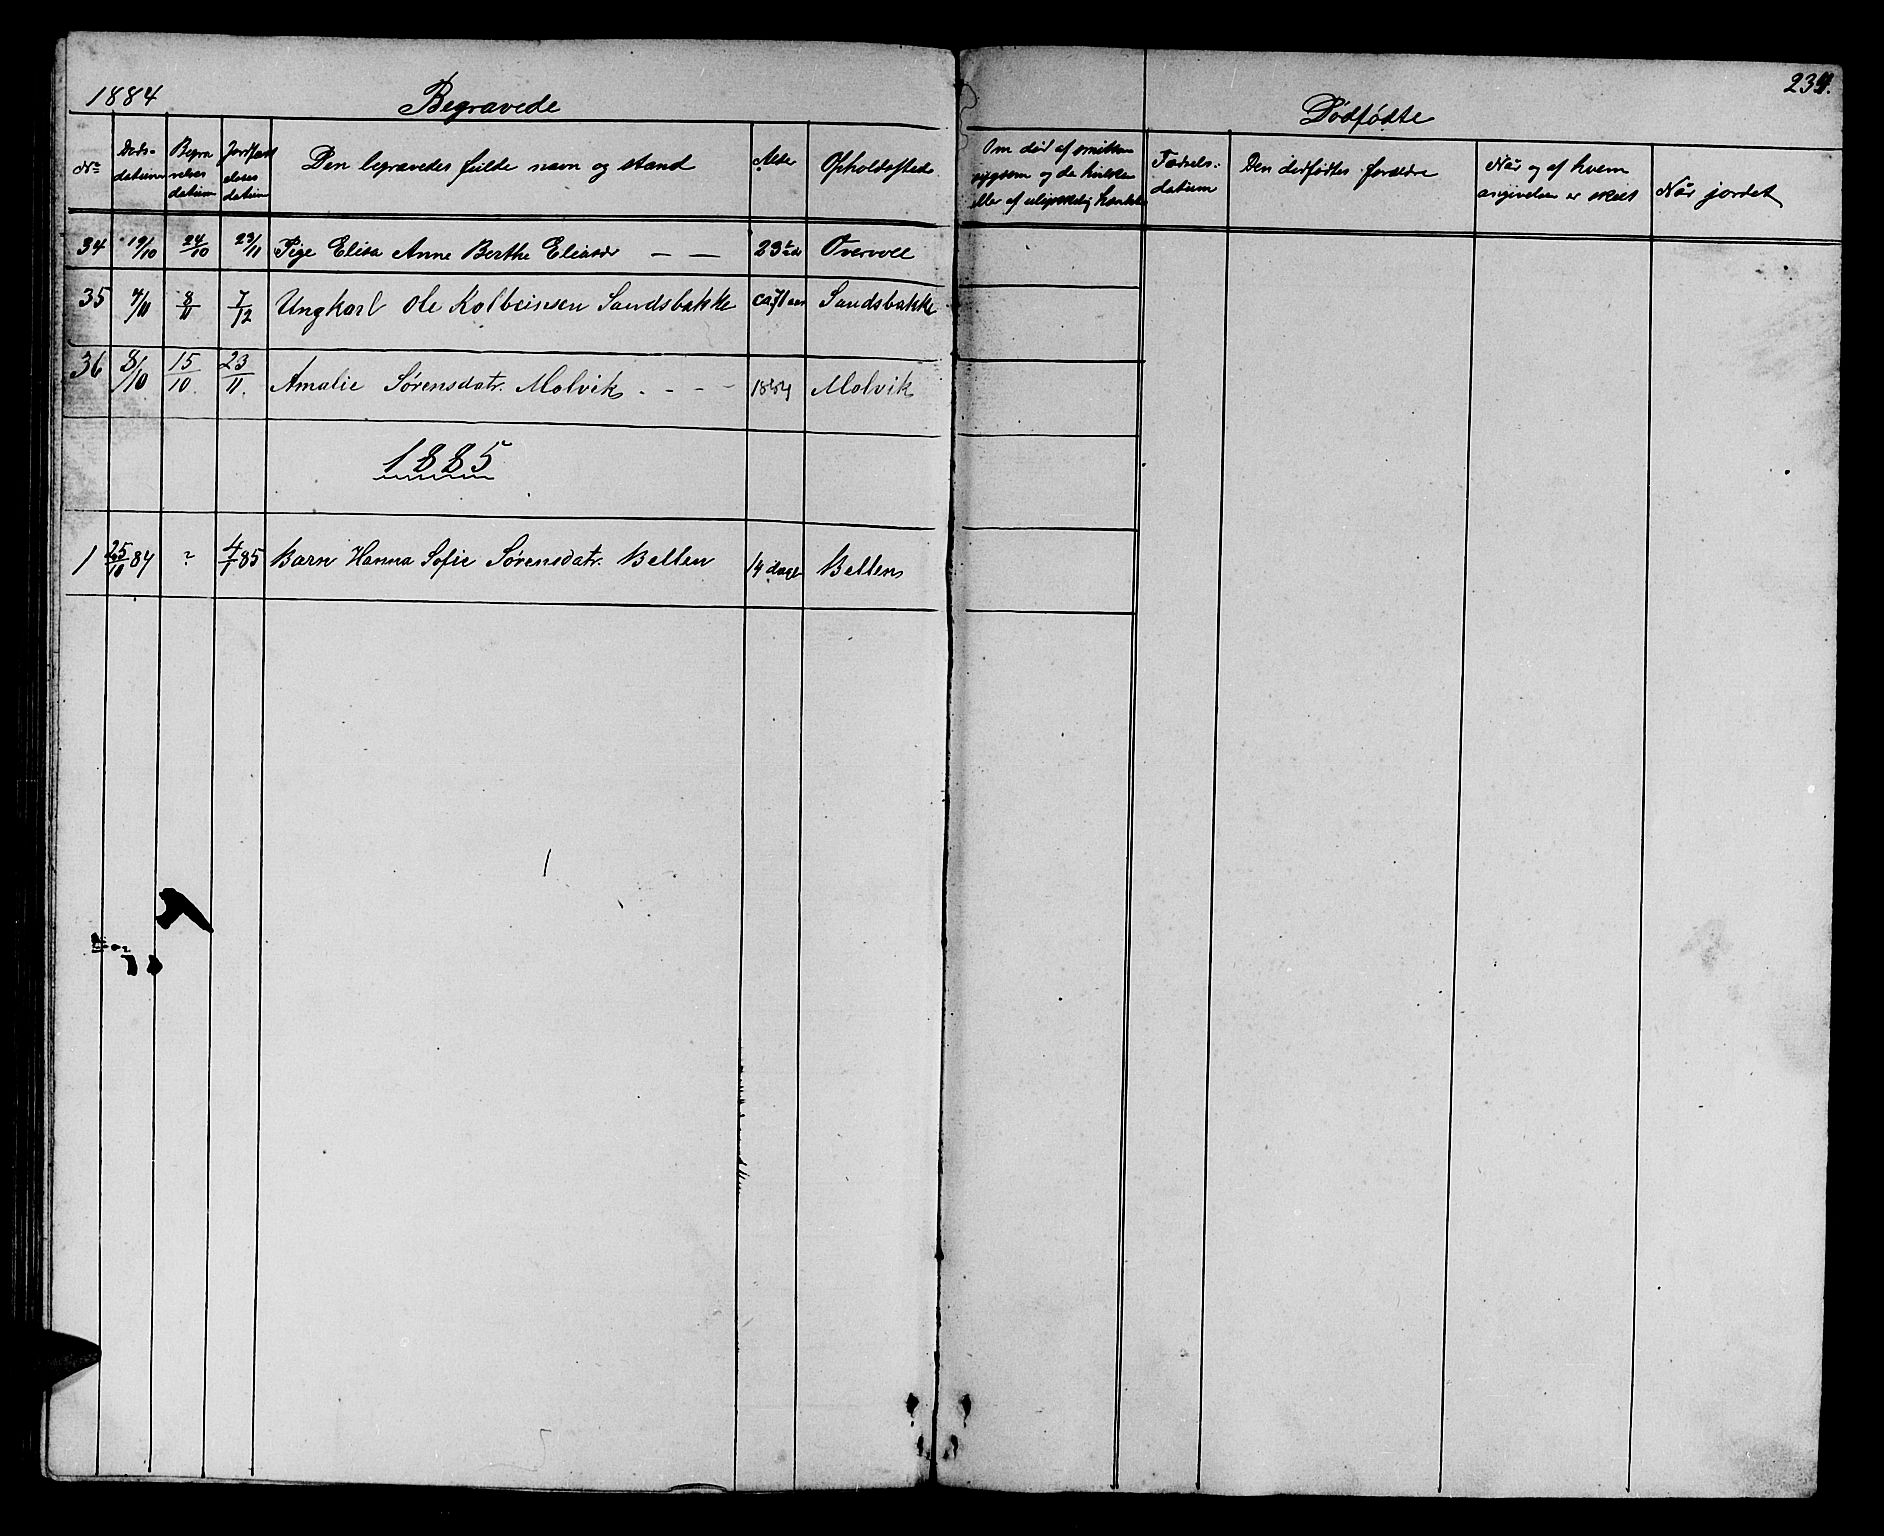 1884
Begravede
Nr. Døds-datum Begravelses datum Jordfæstelses datum Den begravedes fulde navn og stand Alder Opholdssted
34 19/10 24/10 23/11 Pige Elisa Anne Berthe Eliasdr — — Overvoll
35 4/11 8/11 7/12 Ungkarl Ole Kolbeinsen Sandsbakke ca 71 aar Sandsbakke
36 8/10 15/10. 23/11. Amalie Sørensdatr. Molvik - - - Molvik
1885
1 25/10 84 ? 4/1 85 Barn Hanna Sofie Sørensdatr. Belten 14 dage Belten
234.
Dødfødte
Om død af smitsom
sygdom og da hvilken
eller af ulykkelig hændelse
Fødsels-datum Den dødfødtes forældre Når og af hvem angivelsen er skeet Når jordet